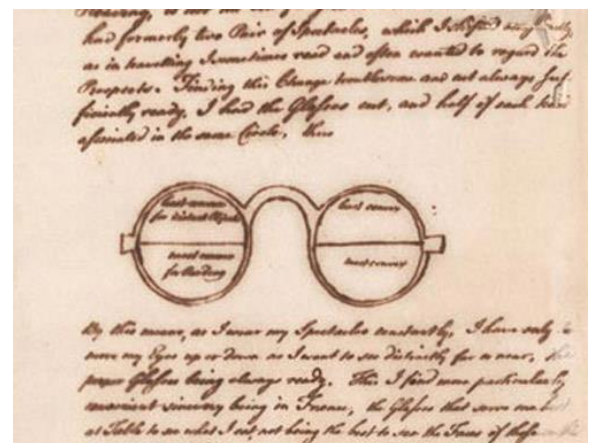 had formerly two Pair of Spectacles, which I shifted occasionally,
as in travelling I sometimes read and often wanted to regard the
Prospects. Finding this Change troublesome and not always suf-
ficiently ready, I had the Glasses cut, and half of each kind
associated in the same Circle, thus
least convex
for distant Objects
least convex
most convex
for Reading
most convex
By this means, as I wear my Spectacles constantly, I have only to
move my Eyes up or down as I want to see distinctly far or near, the
proper Glasses being always ready. This I find more particularly
convenient since my being in France, the Glasses that serve me best
at Table to see what I eat, not being the best to see the Faces of those